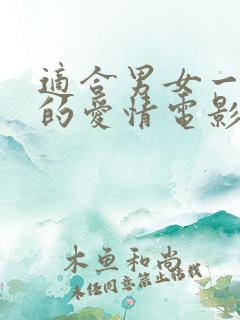 適合男女一
的愛情電影
木魚和尚
未经同意禁止转载